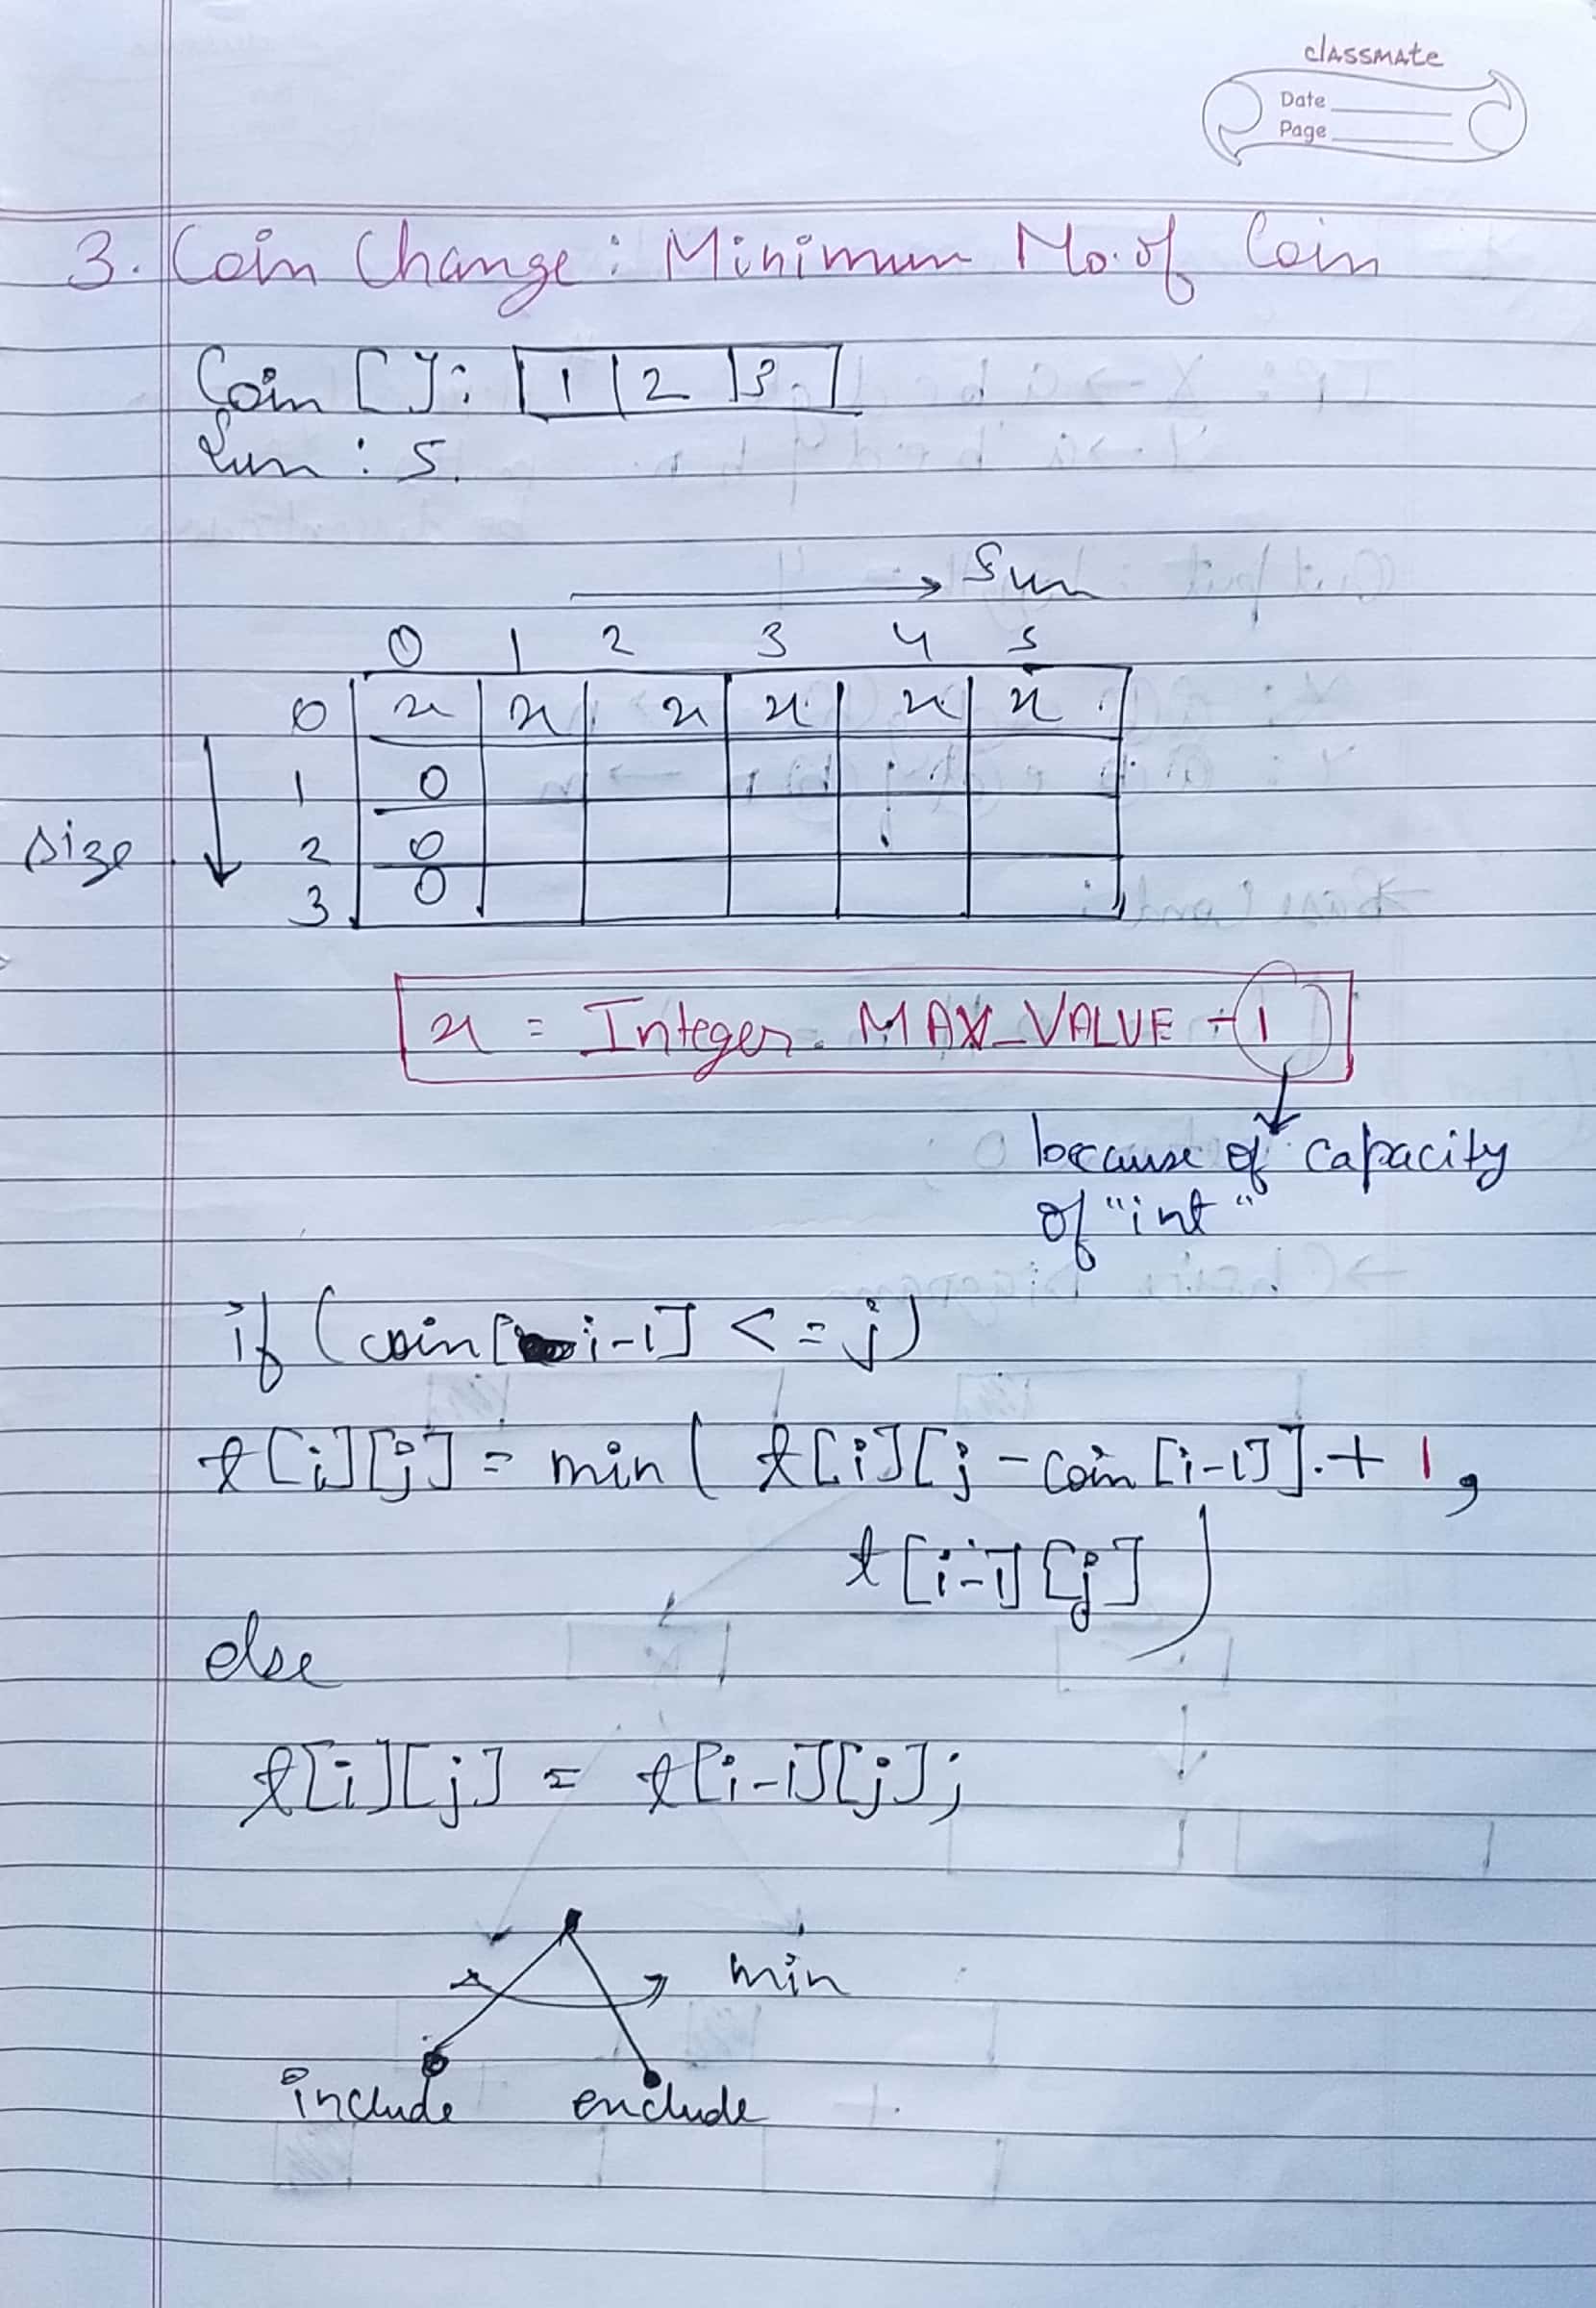 classmate
Date
Page
3. Coin Change : Minimum No. of Coin
Coin [ ] : 1 2 3
Sum : 5.
Sum
0 1 2 3 4 5
0 x x x x x x
1 0
size 2 0
3 0
x = Integer. MAX_VALUE - 1
because of capacity
of "int"
if (coin[i-1] <= j)
t[i][j] = min ( t[i][j - coin [i-1]] + 1 ,
t[i-1][j] )
else
t[i][j] = t[i-1][j] ;
min
include exclude